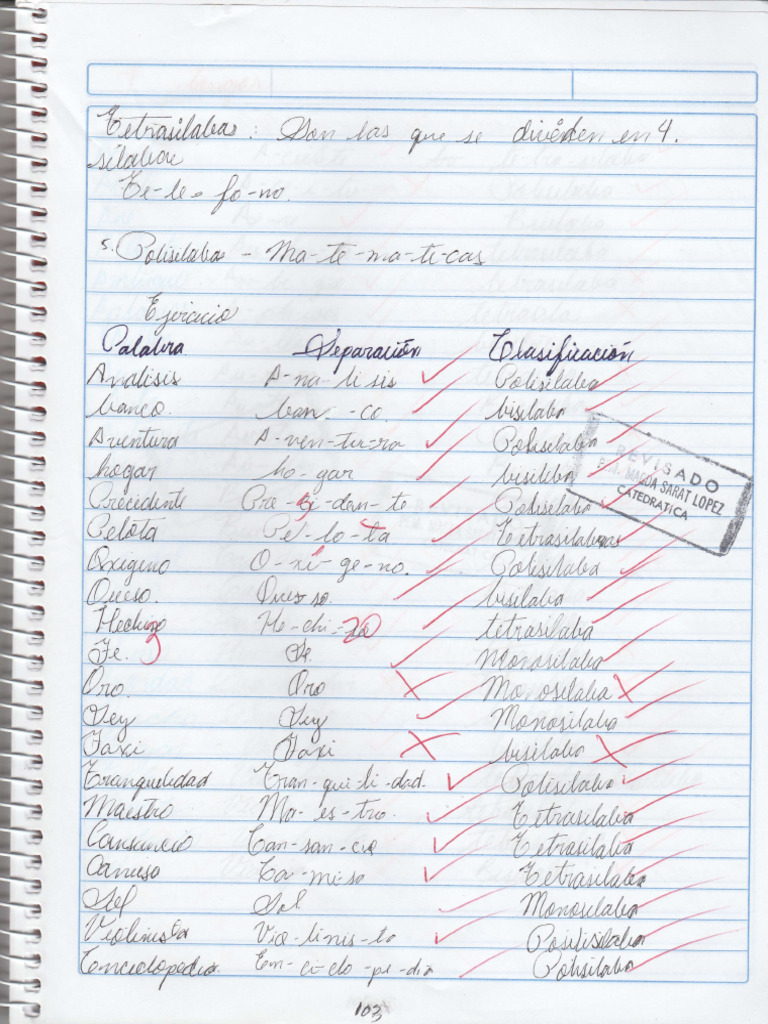 Tetrasilabas: Son las que se dividen en 4.
silabas
Te-le-fo-no.
5. Polisilabas - Ma-te-ma-ti-cas
Ejercicio
Palabra Separación Clasificación
Análisis A-na-li sis Polisilaba
banco. ban-co. bisilaba
Aventura A-ven-tu-ra Polisilaba
hogar ho-gar bisilaba
REVISADO
P.M. MAGDA SARAT LOPEZ
CATEDRATICA
Precedente Pre-si-den-te Polisilabo
Pelota Pe-lo-ta Tetrasilabas
Oxigeno O-xi-ge-no. Polisilaba
Queso. Que-so bisilaba
Hechizo He-chi-zo tetrasilaba
Fe. Fe. Monosilaba
Oro. Oro Monosilaba
Ley Ley Monosilaba
Taxi Taxi bisilaba
Tranquelidad Tran-qui-li-dad. Polisilabo
Maestro Ma-es-tro. Tetrasilaba
Cansancio Can-san-cio Tetrasilaba
Camisa Ca-mi-sa Tetrasilaba
Sol Sol Monosilaba
Violinista Vio-linis-ta Positisilaba
Enciclopedia En-ci-clo-pe-dia Polisilabo
103